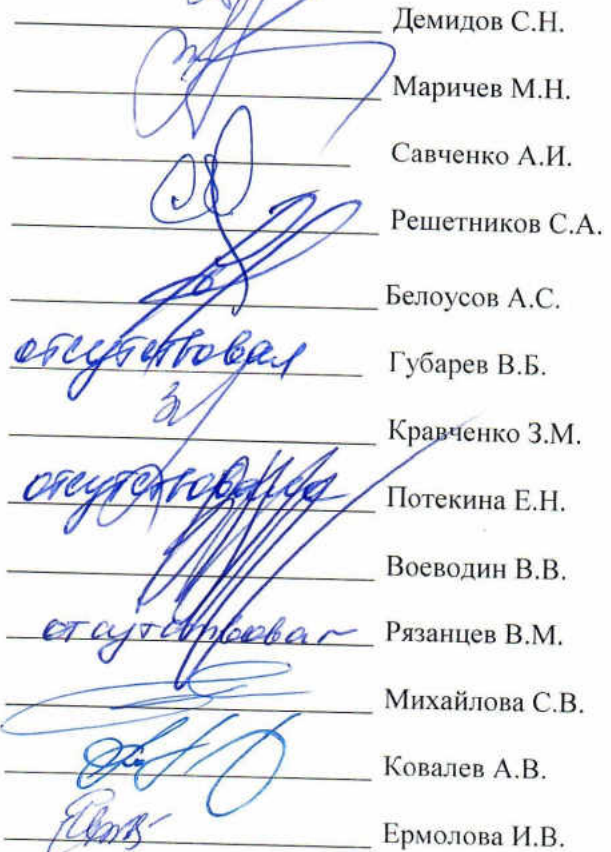 Демидов С.Н.
Маричев М.Н.
Савченко А.И.
Решетников С.А.
Белоусов А.С.
отсутствовал Губарев В.Б.
Кравченко З.М.
отсутствовала Потекина Е.Н.
Воеводин В.В.
отсутствовал Рязанцев В.М.
Михайлова С.В.
Ковалев А.В.
Ермолова И.В.